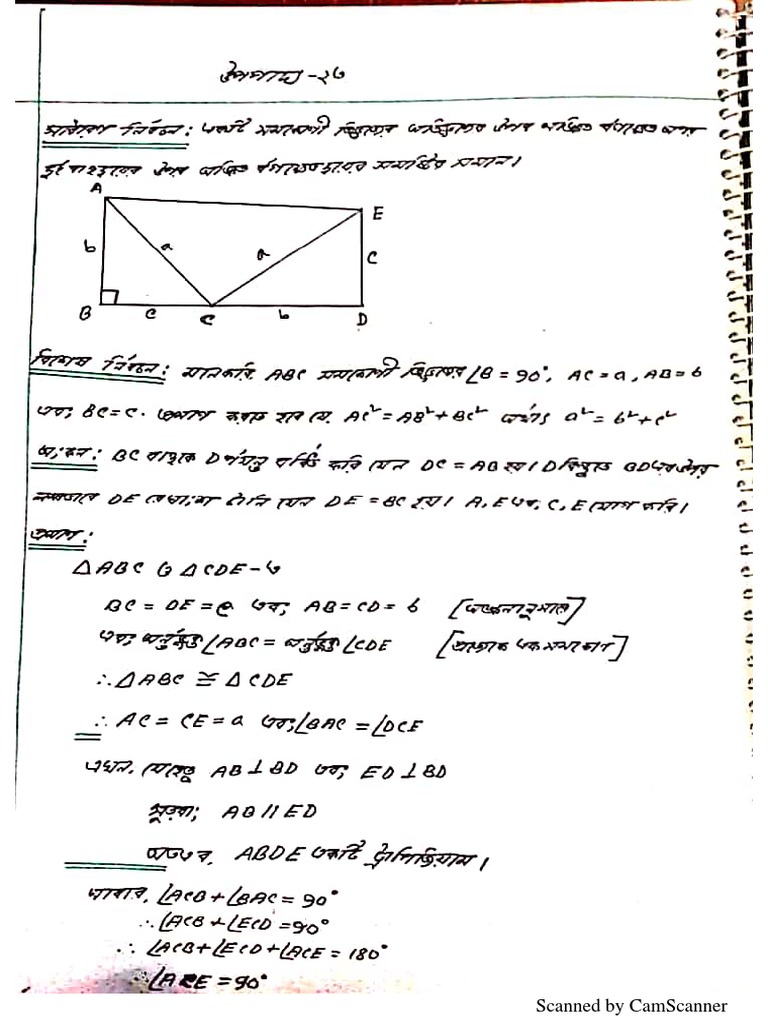 উপপাদ্য-২৩
সাধারণ নির্বচন: একটি সমকোণী ত্রিভুজের অতিভুজের উপর অঙ্কিত বর্গক্ষেত্র অপর
দুই বাহুদ্বয়ের উপর অঙ্কিত বর্গক্ষেত্রদ্বয়ের সমষ্টির সমান।
A
E
b
a
a
C
B
c
C
b
D
বিশেষ নির্বচন: মনেকরি ABC সমকোণী ত্রিভুজের ∠B = 90°, AC = a, AB = b
এবং BC = c. প্রমাণ করতে হবে যে, AC² = AB² + BC² অর্থাৎ a² = b² + c²
অংকন: BC বাহুকে D পর্যন্ত বর্ধিত করি যেন DC = AB হয়। D বিন্দুতে BD এর উপর
লম্বভাবে DE রেখাংশ টানি যেন DE = BC হয়। A, E এবং C, E যোগ করি।
প্রমাণ:
△ABC ও △CDE-এ
BC = DE = c এবং AB = CD = b [অঙ্কনানুসারে]
এবং অন্তর্ভুক্ত ∠ABC = অন্তর্ভুক্ত ∠CDE [প্রত্যেকে এক সমকোণ]
∴ △ABC ≅ △CDE
∴ AC = CE = a এবং ∠BAC = ∠DCE
এখন, যেহেতু AB ⊥ BD এবং ED ⊥ BD
সুতরাং AB // ED
অতএব, ABDE একটি ট্রাপিজিয়াম।
আবার, ∠ACB + ∠BAC = 90°
∴ ∠ACB + ∠ECD = 90°
∴ ∠ACB + ∠ECD + ∠ACE = 180°
∴ ∠ACE = 90°
Scanned by CamScanner